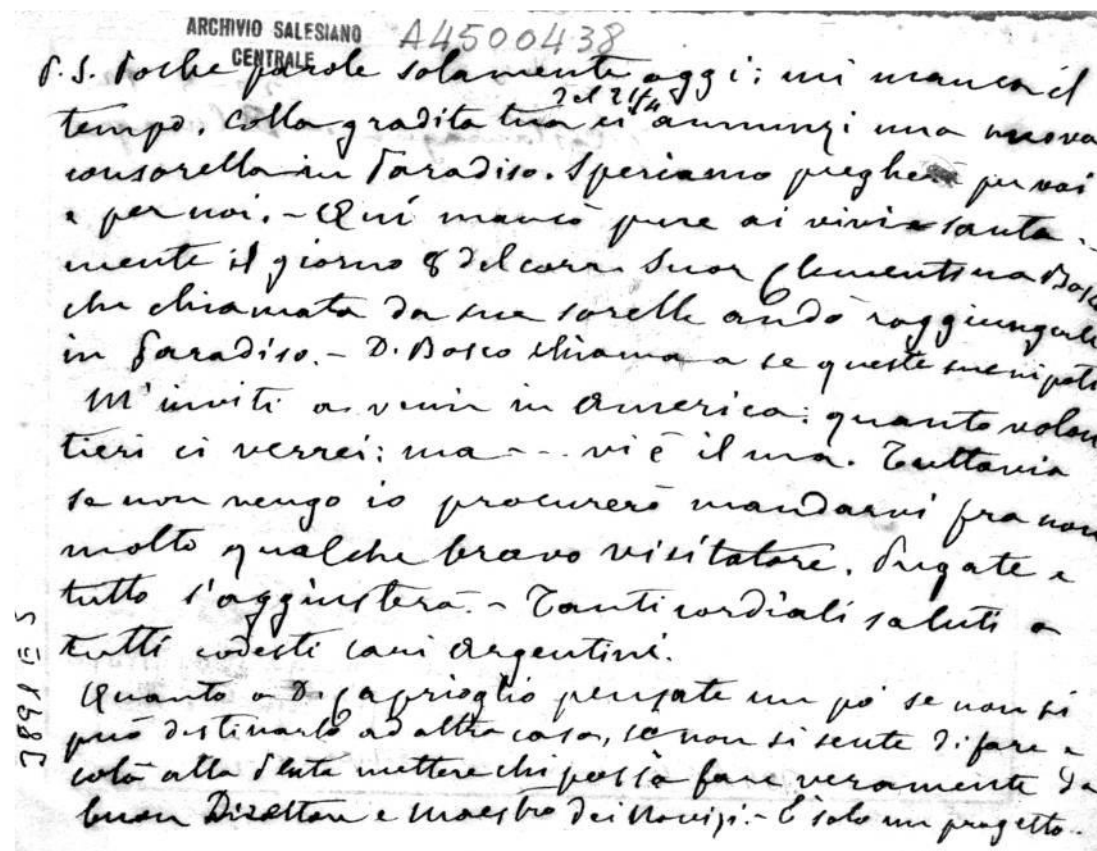 ARCHIVIO SALESIANO
CENTRALE
A4500438
P.S. Poche parole solamente oggi; mi manca il
del 21/4
tempo. Colla gradita tua ci annunzi una nuova
consorella in Paradiso. Speriamo pregherà per voi
e per noi. - Qui mancò pure ai vivi santa-
mente il giorno 8 del corr. Suor Clementina Bosco
che chiamata da sue sorelle andò raggiungerle
in Paradiso. - D. Bosco chiama a se queste sue nipoti
M'inviti a venir in America: quanto volon
tieri ci verrei; ma - - . vi è il ma. Tuttavia
se non vengo io procurerò mandarvi fra non
molto qualche bravo visitatore. Pregate e
tutto s'aggiusterà. - Tanti cordiali saluti a
tutti codesti cari Argentini.
Quanto a D. Caprioglio pensate un pò se non si
può destinarlo ad altra casa, se non si sente di fare e
colà alla Plata mettere chi possa fare veramente da
buon Direttore e Maestro dei Novizi. - È solo un progetto.